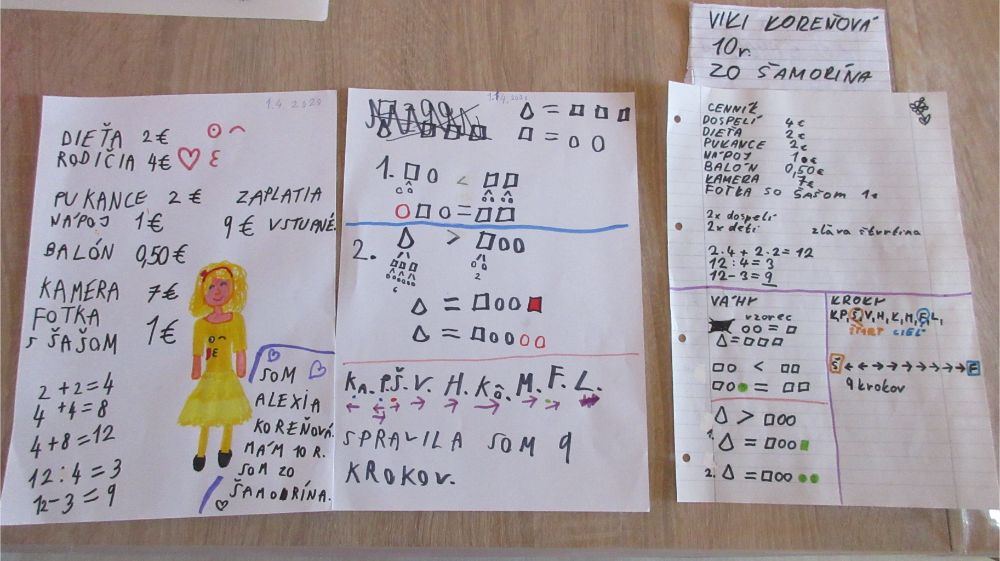 1.4. 2020
DIEŤA 2€
RODIČIA 4€
PUKANCE 2€ ZAPLATIA
NÁPOJ 1€ 9€ VSTUPNÉ.
BALÓN 0,50€
KAMERA 7€
FOTKA
S ŠAŠOM 1€
2+2=4
4+4=8
4+8=12
12:4=3
12-3=9
SOM
ALEXIA
KOREŇOVÁ.
MÁM 10 R.
SOM ZO
ŠAMORÍNA.
1.4.2020
1.
2.
6
2
KA. P.Š. V. H. KÔ. M. F. L.
SPRAVILA SOM 9
KROKOV.
VIKI KOREŇOVÁ
10r.
ZO ŠAMORÍNA
CENNÍK
DOSPELÍ 4€
DIEŤA 2€
PUKANCE 2€
NÁPOJ 1€
BALÓN 0,50€
KAMERA 7€
FOTKA SO ŠAŠOM 1€
2x dospelí
2x deti zľava štvrtina
2.4 + 2.2 = 12
12:4=3
12-3=9
VÁHY
vzorec
1.
2.
KROKY
K,P,Š,V,H,K,M,F,L,
ŠTART CIEĽ
Š F
9 krokov